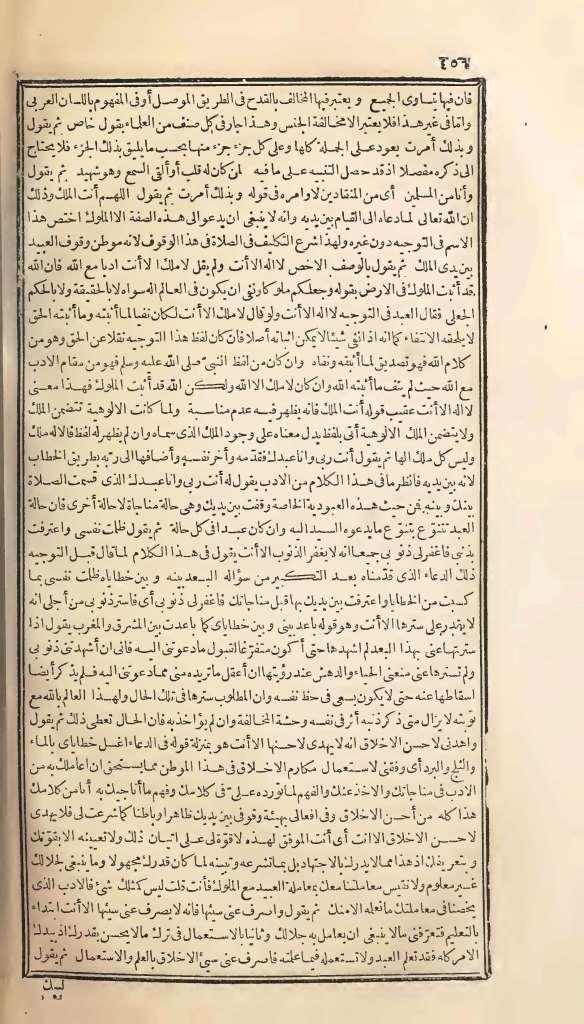 ٤٥٦
فان فيها يتساوى الجميع ويعتبر فيها المخالف بالقدح فى الطريق الموصل أوفى المفهوم باللسان العربى
واتمافى غير هذا فلا يعتبر الامخالفة الجنس وهذا جار فى كل صنف من العلماء يقول خاص ثم يقول
وبذلك أمرت يعود على الجملة كلها وعلى كل جزء جزء منها بحسب ما يليق بذلك الجزء فلا يحتاج
الى ذكره مفصلا اذ قد حصل التنبيه على ما فيه لمن كان له قلب أو ألقى السمع وهو شهيد ثم يقول
وأنا من المسلمين أى من المنقادين لاوامره فى قوله وبذلك أمرت ثم يقول اللهم أنت الملك وذلك
ان الله تعالى لما دعاه الى القيام بين يديه وانه لا ينبغى ان يدعو الى هذه الصفة الا الملوك اختص هذا
الاسم فى التوجيه دون غيره ولهذا شرع التكليف فى الصلاة فى هذا الوقوف لانه موطن وقوف العبيد
بين يدى الملك ثم يقول بالوصف الاخص لا اله الا أنت ولم يقل لا ملك الا أنت ادبا مع الله فان الله
قد أثبت الملوك فى الارض بقوله وجعلكم ملوكا ونفى ان يكون فى العالم اله سواه لا بالحقيقة ولا بالحكم
الجعلى فقال العبد فى التوجيه لا اله الا أنت ولو قال لا ملك الا أنت لكان نفيا لما أثبته وما أثبته الحق
لا يلحقه الانتفاء كما انه اذا نفى شيئا لا يمكن اثباته أصلا فان كان لفظ هذا التوجيه نقلا عن الحق وهو من
كلام الله فهو تصديق لما أثبته ونفاه وان كان من لفظ النبى صلى الله عليه وسلم فهو من مقام الادب
مع الله حيث لم ينف ما أثبته الله وان كان لا ملك الا الله ولكن الله قد أثبت الملوك فهذا معنى
لا اله الا أنت عقيب قوله أنت الملك فانه يظهر فيه عدم مناسبة ولما كانت الالوهية تتضمن الملك
ولا يتضمن الملك الالوهية أتى بلفظ يدل معناه على وجود الملك الذى سماه وان لم يظهر له لفظ فالاله ملك
وليس كل ملك الها ثم يقول أنت ربى وانا عبدك فقدمه وأخر نفسه وأضافها الى ربه بطريق الخطاب
لانه بين يديه فانظر ما فى هذا الكلام من الادب يقول له أنت ربى وانا عبدك الذى قسمت الصلاة
بينك وبينه فمن حيث هذه العبودية الخاصة وقفت بين يديك وهى حالة مناجاة لا حالة أخرى فان حالة
العبد تتنوع بتنوع ما يدعوه السيد اليه وان كان عبدا فى كل حالة ثم يقول ظلمت نفسى واعترفت
بذنبى فاغفر لى ذنوبى جميعا انه لا يغفر الذنوب الا أنت يقول فى هذا الكلام لما قال قبل التوجيه
ذلك الدعاء الذى قدمناه بعد التكبير من سؤاله البعد بينه وبين خطاياه ظلمت نفسى بما
كسبت من الخطايا واعترفت بين يديك بها قبل مناجاتك فاغفر لى ذنوبى أى فاستر ذنوبى من أجلى انه
لا يقدر على سترها الا أنت وهو قوله باعد بينى وبين خطاياى كما باعدت بين المشرق والمغرب يقول اذا
سترتها عنى بهذا البعد لم اشهدها حتى أكون متفرغا لقبول ما دعوتنى اليه فانى ان أشهدتنى ذنوبى
ولم تسترها عنى منعنى الحياء والدهش عند رؤيتها ان أعقل ما تريده منى مما دعوتنى اليه فلم يذكر أيضا
اسقاطها عنه حتى لا يكون يسعى فى حظ نفسه وان المطلوب سترها فى تلك الحال ولهذا العالم بالله مع
توبته لا يزال متى ذكر ذنبه أثر فى نفسه وحشة المخالفة وان لم يؤاخذ به فان الحال تعطى ذلك ثم يقول
واهدنى لاحسن الاخلاق انه لا يهدى لاحسنها الا أنت هو بمنزلة قوله فى الدعاء اغسل خطاياى بالماء
والثلج والبرد أى وفقنى لاستعمال مكارم الاخلاق فى هذا الموطن مما يستحق ان اعاملك به من
الادب فى مناجاتك والاخذ عنك والفهم لما تورده على فى كلامك وفهم ما أناجيك به أنا من كلامك
هذا كله من أحسن الاخلاق وفى افعالى بهيئة وقوفى بين يديك ظاهرا وباطنا كما شرعت لى فلا يهدى
لاحسن الاخلاق الا انت أى أنت الموفق لهذه لا قوة لى على اتيان ذلك ولا تعيينه الا بقوتك
وبتعريفك اذ هذا مما لا يدرك بالاجتهاد بل بما تشرعه وتبينه لما كان قدرك مجهولا وما ينبغى لجلالك
غير معلوم ولا نقيس معاملتنا معك بمعاملة العبيد مع الملوك فأنت قلت ليس كمثلك شئ فالادب الذى
يخصنا فى معاملتك ما نعلمه الا منك ثم يقول واصرف عنى سيئها فانه لا يصرف عنى سيئها الا أنت ابتداء
بالتعليم فتعرفنى ما لا ينبغى ان يعامل به جلالك وثانيا بالاستعمال فى ترك ما لا يحسن بقدرك اذ بيدك
الامر كله فقد تعلم العبد ولا تستعمله فيما علمته فاصرف عنى سيئ الاخلاق بالعلم والاستعمال ثم يقول
لبيك